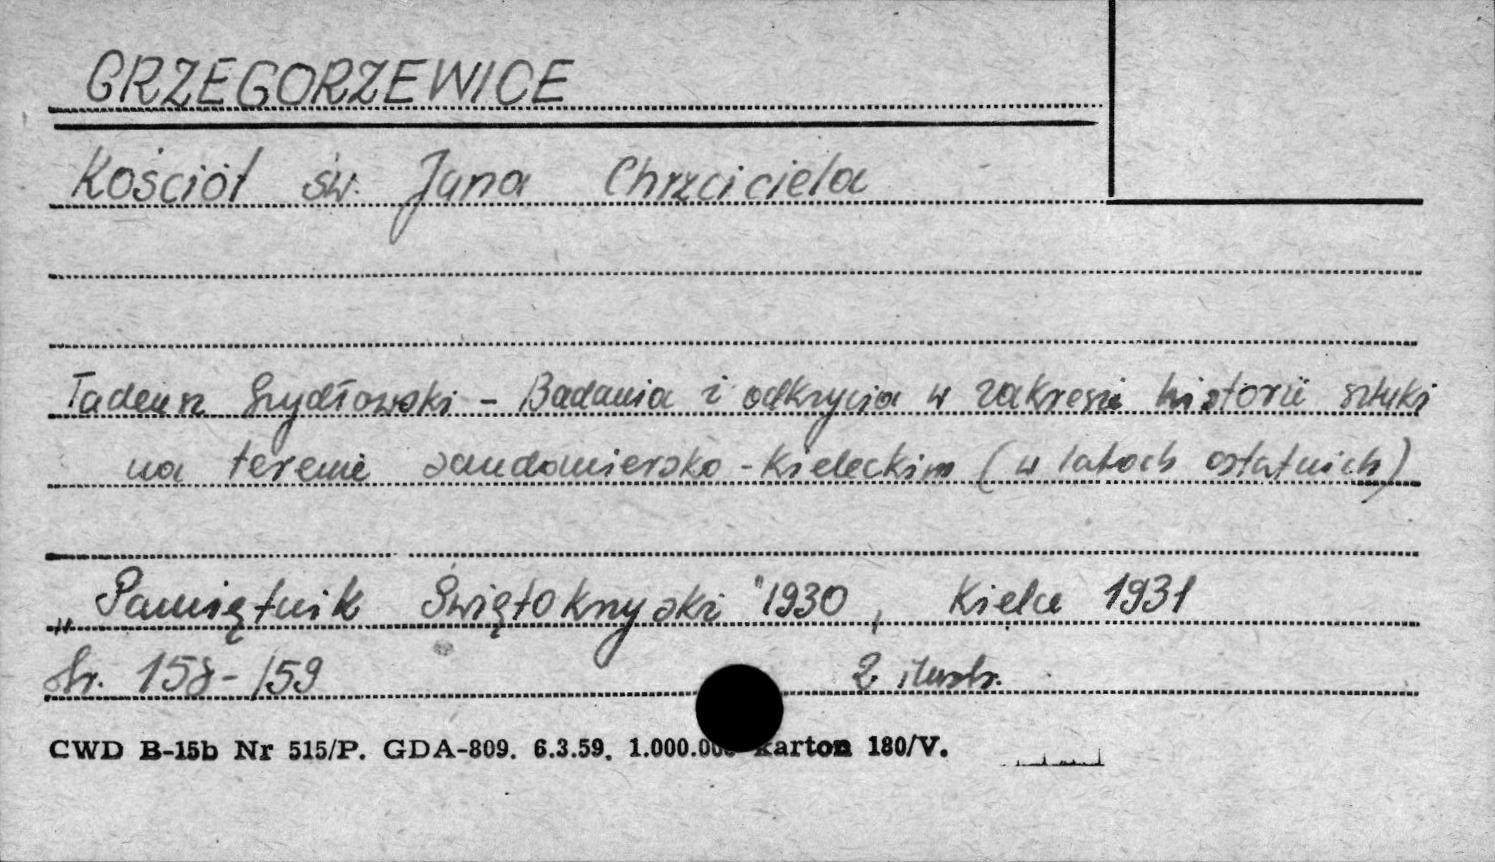 GRZEGORZEWICE
Kościół św. Jana Chrzciciela
Tadeusz Szydłowski - Badania i odkrycia w zakresie historii sztuki
na terenie sandomiersko-kieleckim (w latach ostatnich)
„Pamiętnik Świętokrzyski" 1930, Kielce 1931
str. 158-159 2 ilustr.
CWD B-15b Nr 515/P. GDA-809. 6.3.59. 1.000.000 karton 180/V.